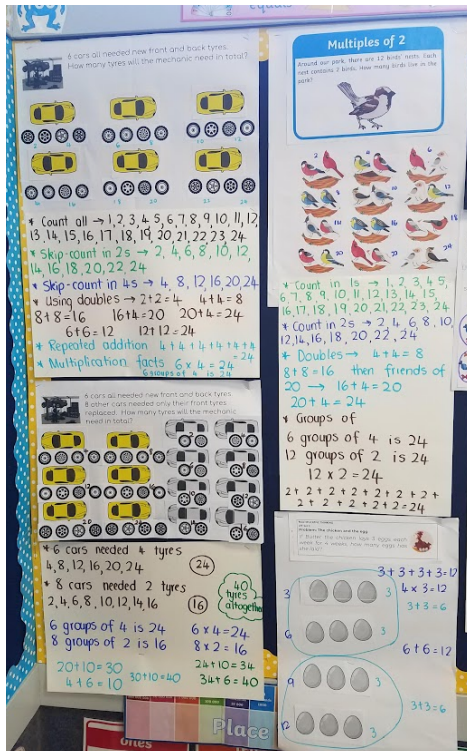 equals
6 cars all needed new front and back tyres.
How many tyres will the mechanic need in total?
* Count all → 1, 2, 3, 4, 5, 6, 7, 8, 9, 10, 11, 12,
13, 14, 15, 16, 17, 18, 19, 20, 21, 22, 23, 24
* Skip-count in 2s → 2, 4, 6, 8, 10, 12,
14, 16, 18, 20, 22, 24
* Skip-count in 4s → 4, 8, 12, 16, 20, 24
* Using doubles → 2+2=4 4+4=8
8+8=16 16+4=20 20+4=24
6+6=12 12+12=24
* Repeated addition 4+4+4+4+4+4
=24
* Multiplication facts 6 x 4 = 24
6 groups of 4 is 24
6 cars all needed new front and back tyres.
8 other cars needed only their front tyres
replaced. How many tyres will the mechanic
need in total?
* 6 cars needed 4 tyres
4, 8, 12, 16, 20, 24
24
* 8 cars needed 2 tyres
2, 4, 6, 8, 10, 12, 14, 16
16
40
tyres
altogether
6 groups of 4 is 24 6 x 4 = 24
8 groups of 2 is 16 8 x 2 = 16
20+10=30 24+10=34
4+6=10 30+10=40 34+6=40
Multiples of 2
Around our park, there are 12 birds' nests. Each
nest contains 2 birds. How many birds live in the
park?
* Count in 1s → 1, 2, 3, 4, 5,
6, 7, 8, 9, 10, 11, 12, 13, 14, 15,
16, 17, 18, 19, 20, 21, 22, 23, 24
* Count in 2s → 2, 4, 6, 8, 10,
12, 14, 16, 18, 20, 22, 24
* Doubles → 4+4=8
8+8=16 then friends of
20 → 16+4=20
20+4=24
* Groups of
6 groups of 4 is 24
12 groups of 2 is 24
12 x 2 = 24
2+2+2+2+2+2+2+
2+2+2+2+2=24
3+3+3+3=12
4 x 3 = 12
3+3=6
6+6=12
3+3=6
3 3
6 3
9 3
12 3
Place